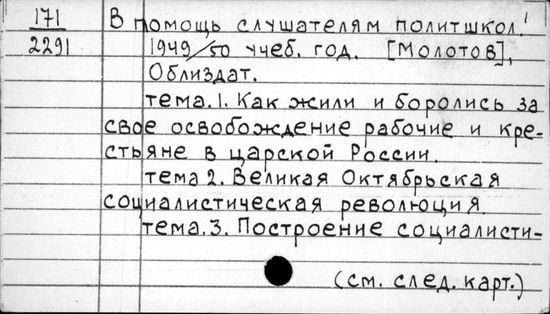 171
2291
В помощь слушателям политшкол.
1949/50 учеб. год. [Молотов],
Облиздат.
тема.1. Как жили и боролись за
свое освобождение рабочие и кре-
стьяне в царской России.
тема 2. Великая Октябрьская
социалистическая революция.
тема.3. Построение социалисти-
(см. след. карт.)